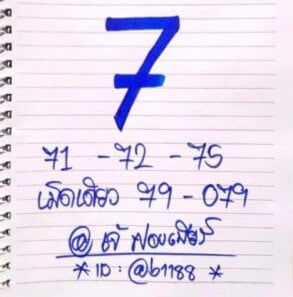 7
71 - 72 - 75
เม็ดเดียว 79 - 079
@ เจ๊
* ID : @b1188 *